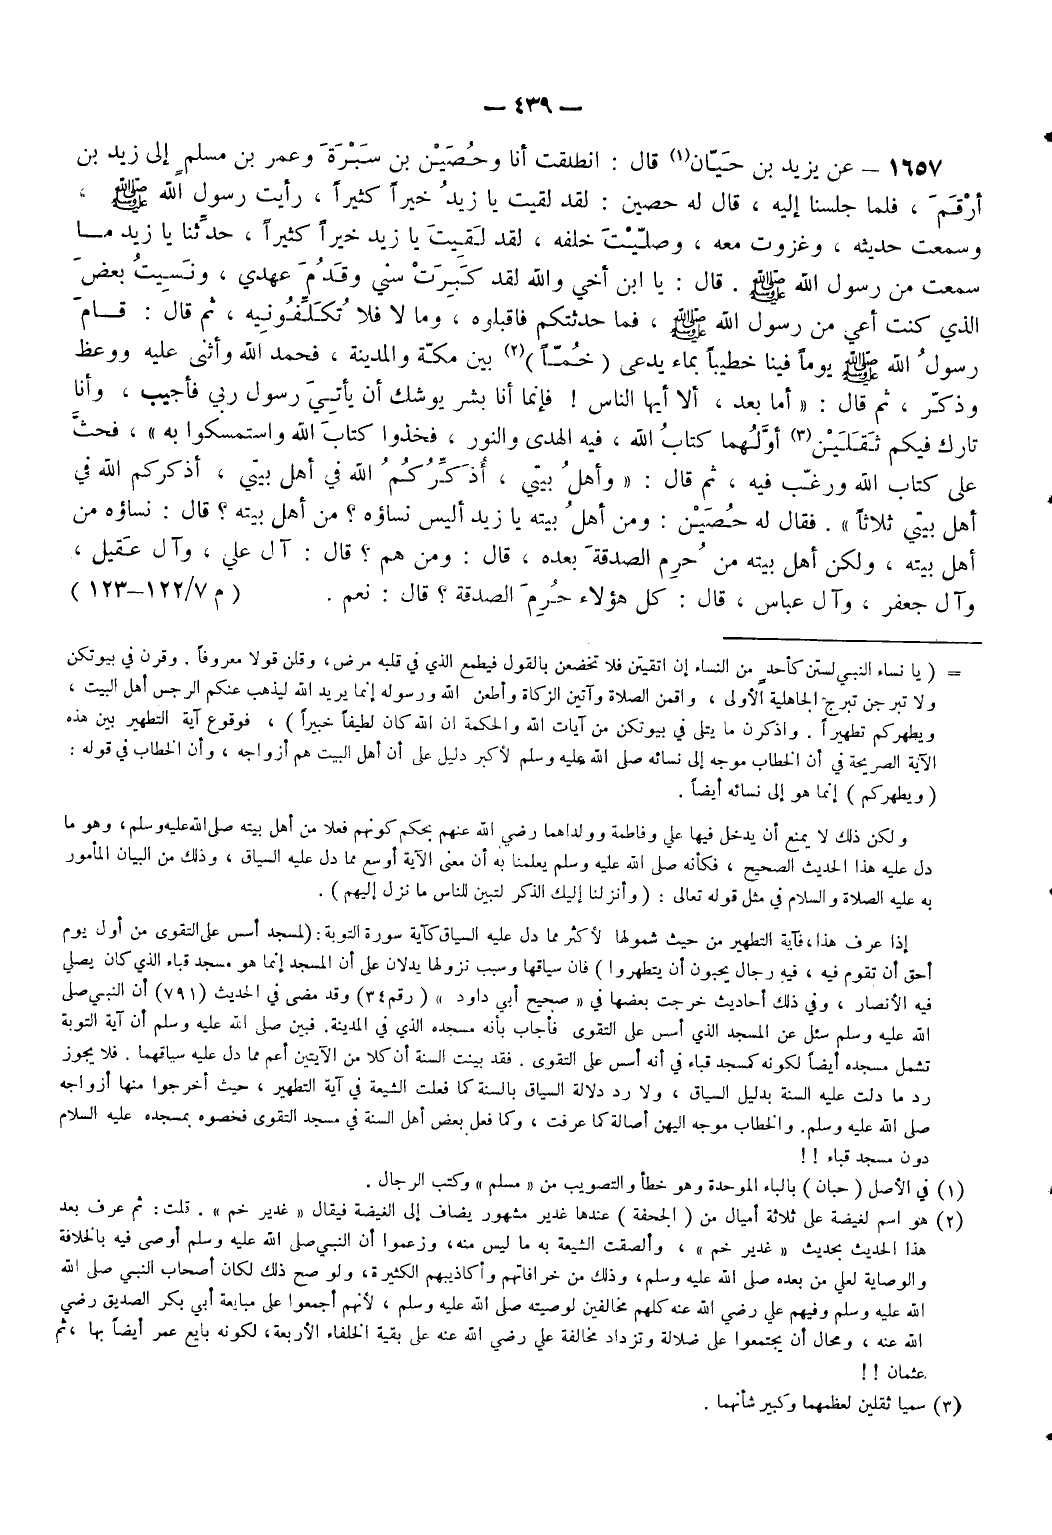 — ٤٣٩ —
١٦٥٧ – عن يزيد بن حَيّان(١) قال : انطلقت أنا وحُصَيْن بن سَبْرَةَ وعمر بن مسلم إلى زيد بن
أرْقَمَ ، فلما جلسنا إليه ، قال له حصين : لقد لقيت يا زيدُ خيراً كثيراً ، رأيت رسول الله ﷺ ،
وسمعت حديثه ، وغزوت معه ، وصلّيْتَ خلفه ، لقد لَقِيتَ يا زيد خيراً كثيراً ، حدثنا يا زيد مـا
سمعت من رسول الله ﷺ . قال : يا ابن أخي والله لقد كَبِرَتْ سني وقَدُمَ عهدي ، ونَسِيتُ بعضَ
الذي كنت أعي من رسول الله ﷺ ، فما حدثتكم فاقبلوه ، وما لا فلا تُكَلِّفُونيه ، ثم قال : قـامَ
رسولُ الله ﷺ يوماً فينا خطيباً بماء يدعى ( خُمّاً )(٢) بين مكّة والمدينة ، فحمد الله وأثنى عليه ووعظ
وذكّر ، ثم قال : « أما بعد ، ألا أيها الناس ! فإنما أنا بشر يوشك أن يأتيَ رسول ربي فأجيب ، وأنا
تارك فيكم ثَقَلَيْن(٣) أوَّلُهما كتابُ الله ، فيه الهدى والنور ، فخذوا كتابَ الله واستمسكوا به » ، فحثَّ
على كتاب الله ورغّب فيه ، ثم قال : « وأهلُ بيتي ، أُذَكِّرُكُمُ الله في أهل بيتي ، أذكركم الله في
أهل بيتي ثلاثاً » . فقال له حُصَيْن : ومن أهلُ بيته يا زيد أليس نساؤه ؟ من أهل بيته ؟ قال : نساؤه من
أهل بيته ، ولكن أهل بيته من حُرِم الصدقةَ بعده ، قال : ومن هم ؟ قال : آل علي ، وآل عَقيل ،
وآل جعفر ، وآل عباس ، قال : كل هؤلاء حُرِمَ الصدقة ؟ قال : نعم . ( م ١٢٢/٧–١٢٣ )
= ( يا نساء النبي لستن كأحد من النساء إن اتقيتن فلا تخضعن بالقول فيطمع الذي في قلبه مرض، وقلن قولا معروفاً . وقرن في بيوتكن
ولا تبرجن تبرج الجاهلية الأولى ، واقمن الصلاة وآتين الزكاة وأطعن الله ورسوله إنما يريد الله ليذهب عنكم الرجس أهل البيت ،
ويطهركم تطهيراً . واذكرن ما يتلى في بيوتكن من آيات الله والحكمة ان الله كان لطيفاً خبيراً ) ، فوقوع آية التطهير بين هذه
الآية الصريحة في أن الخطاب موجه إلى نسائه صلى الله عليه وسلم لأكبر دليل على أن أهل البيت هم أزواجه ، وأن الخطاب في قوله :
( ويطهركم ) إنما هو إلى نسائه أيضاً .
ولكن ذلك لا يمنع أن يدخل فيها علي وفاطمة وولداهما رضي الله عنهم بحكم كونهم فعلا من أهل بيته صلى الله عليه وسلم، وهو ما
دل عليه هذا الحديث الصحيح ، فكأنه صلى الله عليه وسلم يعلمنا به أن معنى الآية أوسع مما دل عليه السياق ، وذلك من البيان المأمور
به عليه الصلاة والسلام في مثل قوله تعالى : ( وأنزلنا إليك الذكر لتبين للناس ما نزل إليهم ) .
إذا عرف هذا، فآية التطهير من حيث شمولها لأكثر مما دل عليه السياق كآية سورة التوبة : (لمسجد أسس على التقوى من أول يوم
أحق أن تقوم فيه ، فيه رجال يحبون أن يتطهروا ) فان سياقها وسبب نزولها يدلان على أن المسجد إنما هو مسجد قباء الذي كان يصلي
فيه الأنصار ، وفي ذلك أحاديث خرجت بعضها في « صحيح أبي داود » ( رقم ٣٤) وقد مضى في الحديث (٧٩١) أن النبي صلى
الله عليه وسلم سئل عن المسجد الذي أسس على التقوى فأجاب بأنه مسجده الذي في المدينة. فبين صلى الله عليه وسلم أن آية التوبة
تشمل مسجده أيضاً لكونه كمسجد قباء في أنه أسس على التقوى . فقد بينت السنة أن كلا من الآيتين أعم مما دل عليه سياقهما . فلا يجوز
رد ما دلت عليه السنة بدليل السياق ، ولا رد دلالة السياق بالسنة كما فعلت الشيعة في آية التطهير ، حيث أخرجوا منها أزواجه
صلى الله عليه وسلم. والخطاب موجه اليهن أصالة كما عرفت ، وكما فعل بعض أهل السنة في مسجد التقوى فخصوه بمسجده عليه السلام
دون مسجد قباء ! !
(١) في الأصل ( حبان ) بالباء الموحدة وهو خطأ والتصويب من « مسلم » وكتب الرجال .
(٢) هو اسم لغيضة على ثلاثة أميال من ( الجحفة ) عندها غدير مشهور يضاف إلى الغيضة فيقال « غدير خم » . قلت : ثم عرف بعد
هذا الحديث بحديث « غدير خم » ، وألصقت الشيعة به ما ليس منه، وزعموا أن النبي صلى الله عليه وسلم أوصى فيه بالخلافة
والوصاية لعلي من بعده صلى الله عليه وسلم، وذلك من خرافاتهم وأكاذيبهم الكثيرة، ولو صح ذلك لكان أصحاب النبي صلى الله
الله عليه وسلم وفيهم علي رضي الله عنه كلهم مخالفين لوصيته صلى الله عليه وسلم ، لأنهم أجمعوا على مبايعة أبي بكر الصديق رضي
الله عنه ، ومحال أن يجتمعوا على ضلالة وتزداد مخالفة علي رضي الله عنه على بقية الخلفاء الأربعة، لكونه بايع عمر أيضاً بها ، ثم
عثمان ! !
(٣) سميا ثقلين لعظمهما وكبير شأنهما .